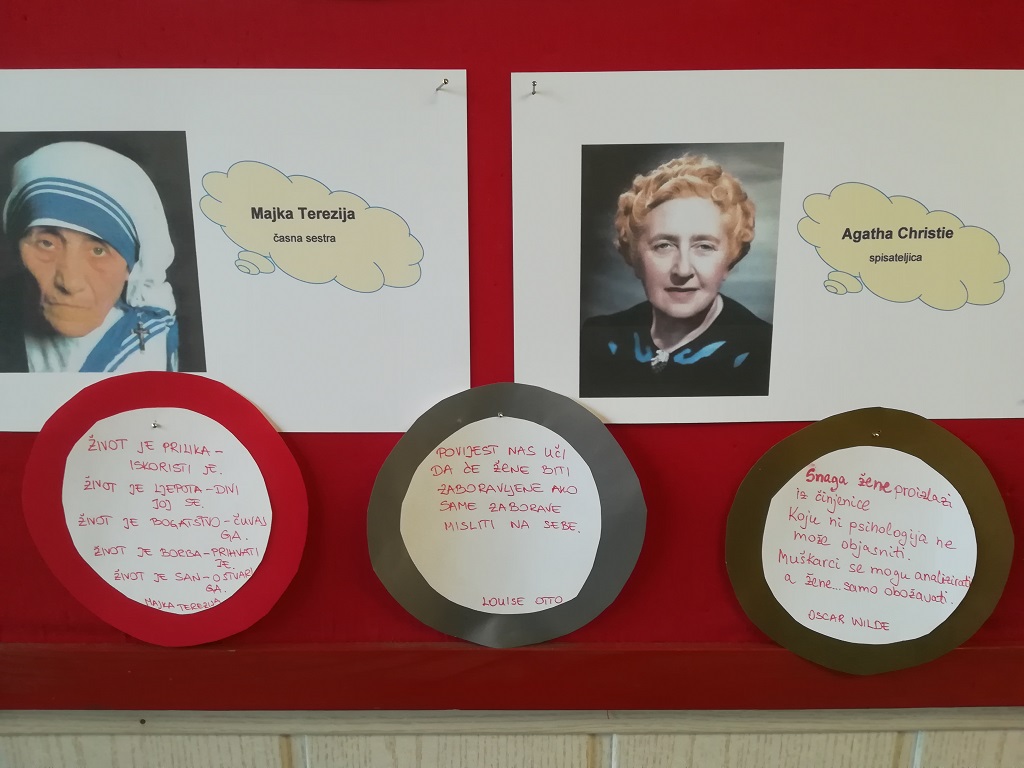 Majka Terezija
časna sestra
Agatha Christie
spisateljica
ŽIVOT JE PRILIKA –
ISKORISTI JE.
ŽIVOT JE LJEPOTA – DIVI
JOJ SE.
ŽIVOT JE BOGATSTVO – ČUVAJ
GA.
ŽIVOT JE BORBA – PRIHVATI
JE.
ŽIVOT JE SAN – OSTVARI
GA.
MAJKA TEREZIJA
POVIJEST NAS UČI
DA ĆE ŽENE BITI
ZABORAVLJENE AKO
SAME ZABORAVE
MISLITI NA SEBE.
LOUISE OTTO
Snaga žene proizlazi
iz činjenice
Koju ni psihologija ne
može objasniti.
Muškarci se mogu analizirati
a žene...samo obožavati.
OSCAR WILDE